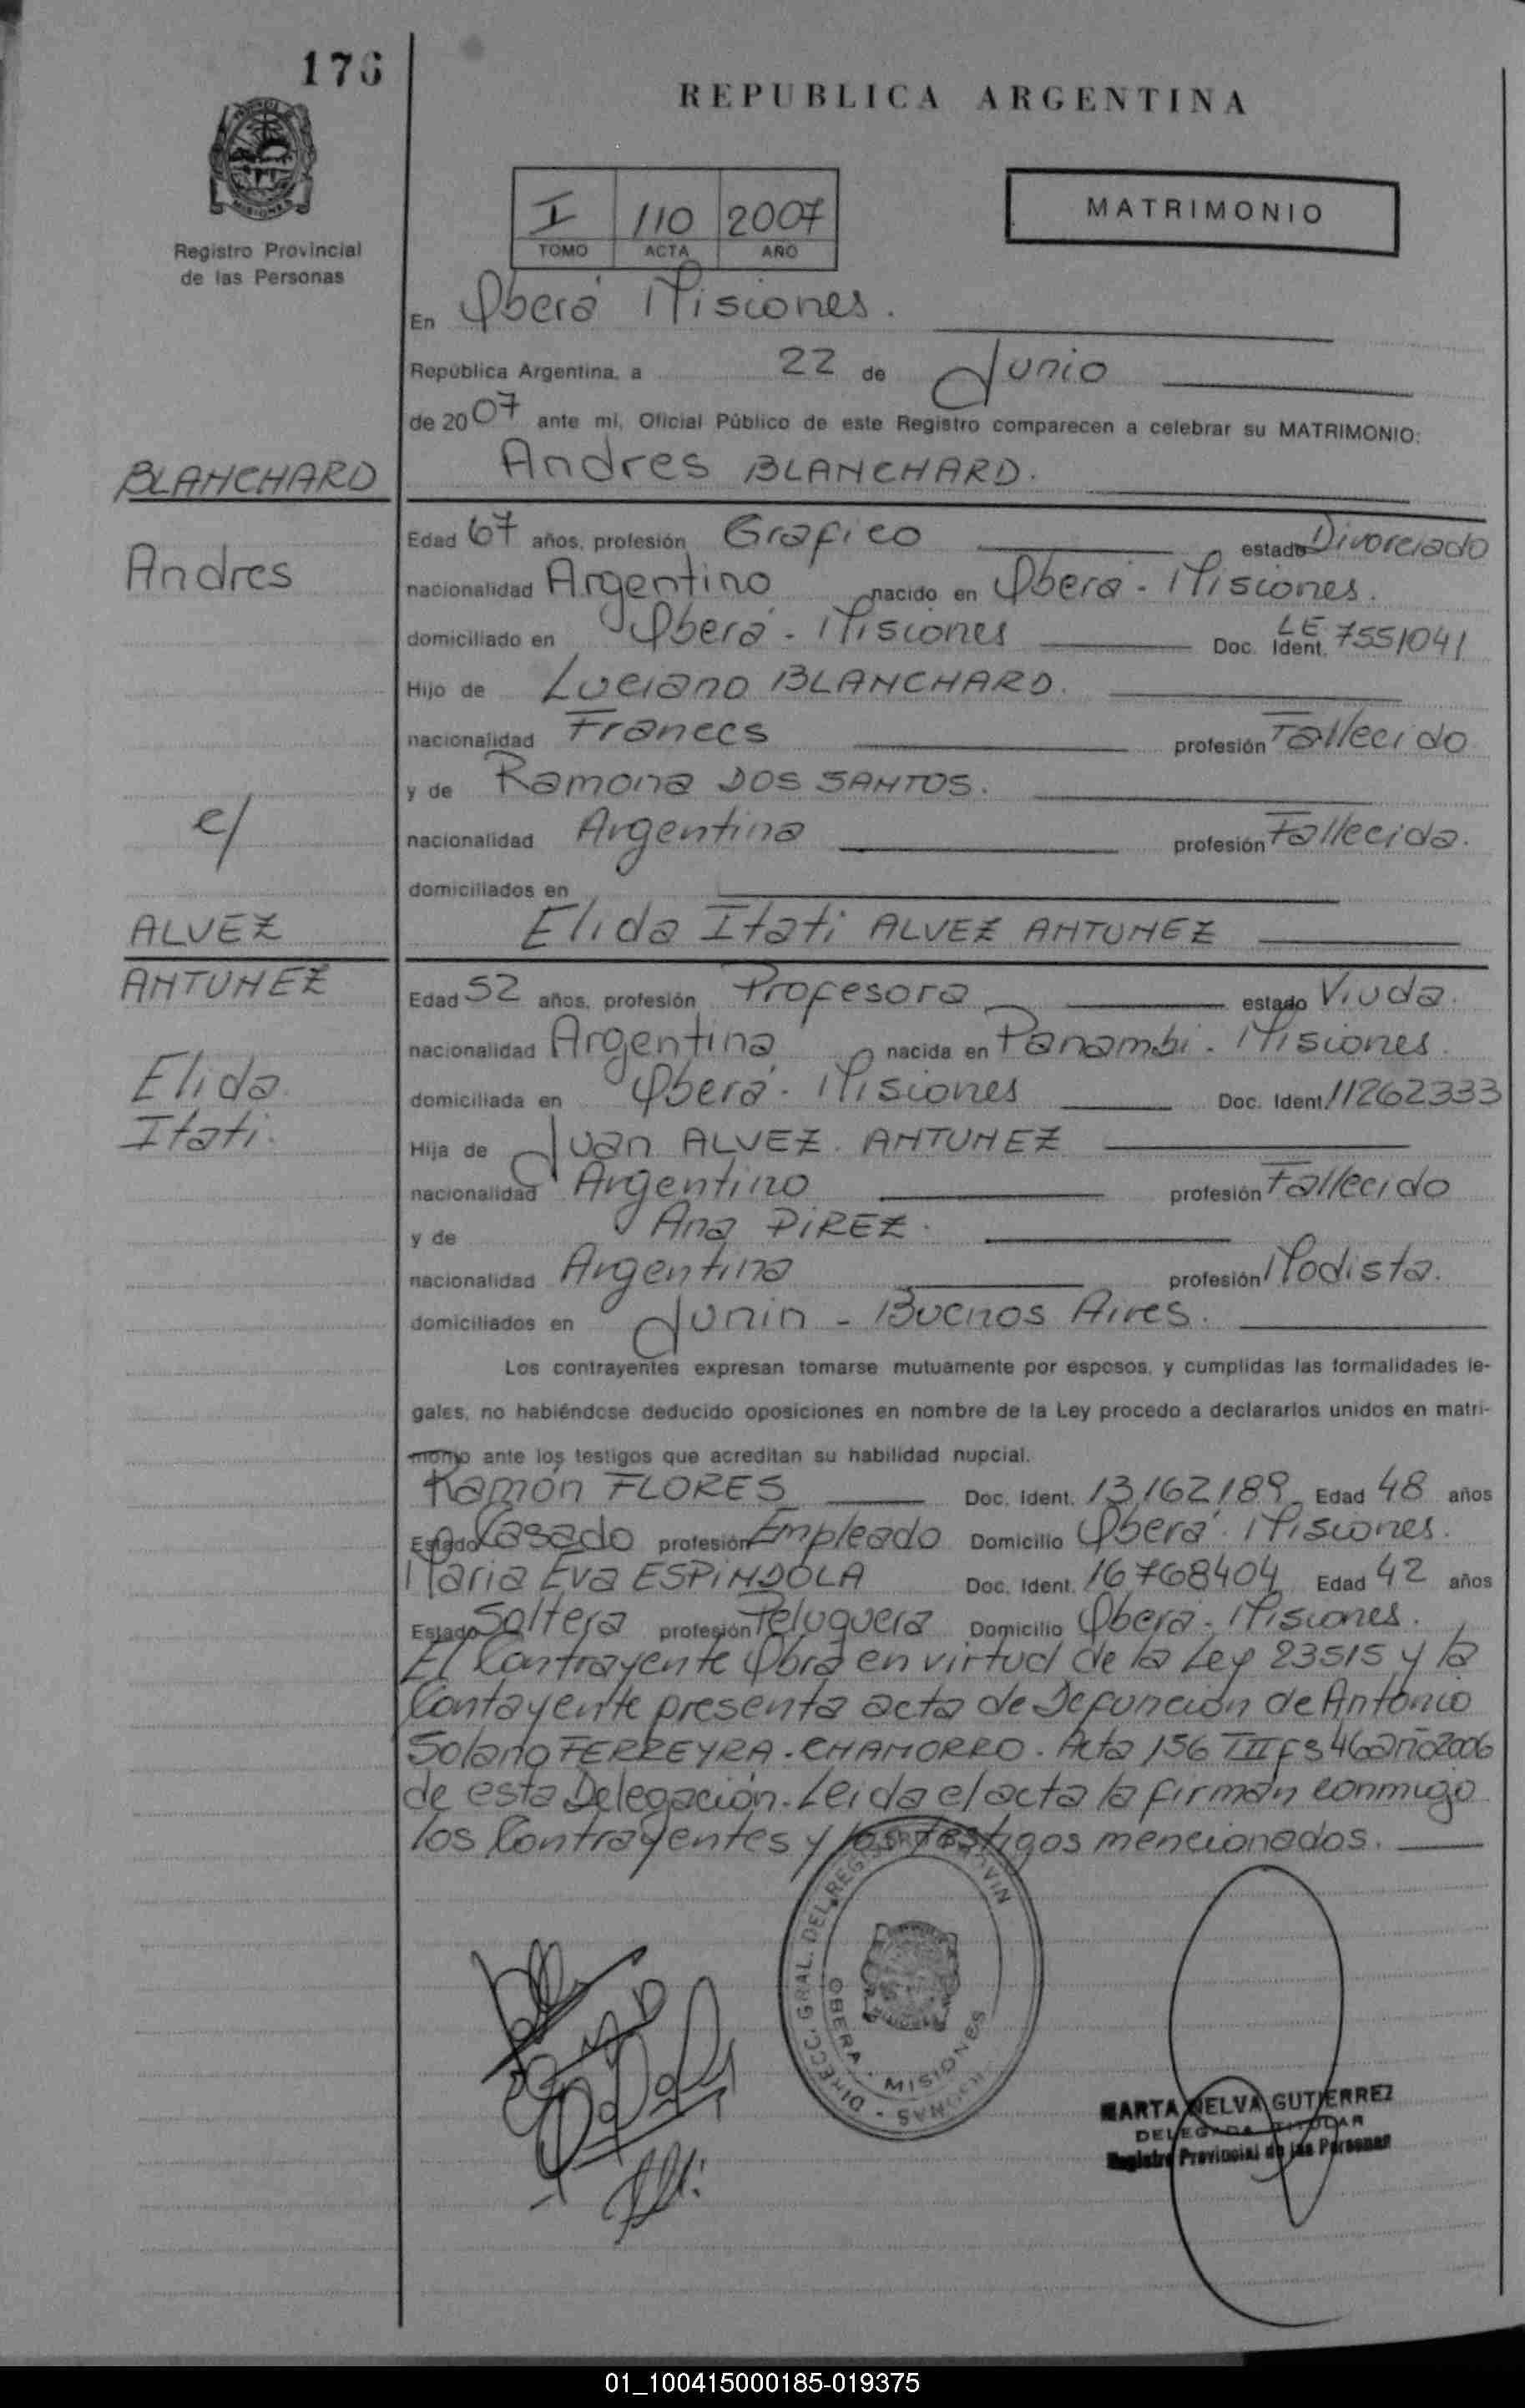 176
REPUBLICA ARGENTINA
MISIONES
Registro Provincial
de las Personas
I 110 2007
TOMO ACTA AÑO
MATRIMONIO
En Oberá Misiones.
República Argentina, a 22 de Junio
de 2007 ante mí, Oficial Público de este Registro comparecen a celebrar su MATRIMONIO:
BLANCHARD
Andres
c/
ALVEZ
ANTUNEZ
Elida
Itati.
Andres BLANCHARD.
Edad 67 años, profesión Grafico estado Divorciado
nacionalidad Argentino nacido en Oberá - Misiones.
domiciliado en Oberá - Misiones Doc. Ident. LE 7551041
Hijo de Luciano BLANCHARD.
nacionalidad Frances profesión Fallecido
y de Ramona DOS SANTOS.
nacionalidad Argentina profesión Fallecida.
domiciliados en
Elida Itati ALVEZ ANTUNEZ
Edad 52 años, profesión Profesora estado Viuda.
nacionalidad Argentina nacida en Panambi - Misiones.
domiciliada en Oberá - Misiones Doc. Ident. 11262333
Hija de Juan ALVEZ ANTUNEZ
nacionalidad Argentino profesión Fallecido
y de Ana PIREZ.
nacionalidad Argentina profesión Modista.
domiciliados en Junin - Buenos Aires.
Los contrayentes expresan tomarse mutuamente por esposos, y cumplidas las formalidades le-
gales, no habiéndose deducido oposiciones en nombre de la Ley procedo a declararlos unidos en matri-
monio ante los testigos que acreditan su habilidad nupcial.
Ramón FLORES Doc. Ident. 13,162,189 Edad 48 años
Estado Casado profesión Empleado Domicilio Oberá - Misiones.
Maria Eva ESPINDOLA Doc. Ident. 16,768404 Edad 42 años
Estado Soltera profesión Peluquera Domicilio Oberá - Misiones.
El Contrayente Obra en virtud de la Ley 23515 y la
Contayente presenta acta de Defunción de Antonio
Solano FERREYRA - CHAMORRO. Acta 156 TIII Fs 46 año 2006
de esta Delegación. Leida el acta la firman conmigo
los Contrayentes y los testigos mencionados.
DIRECC. GRAL. DEL REGISTRO PROVIN
OBERA - MISIONES
MARTA NELVA GUTIERREZ
DELEGADA TITULAR
Registro Provincial de las Personas
01_100415000185-019375